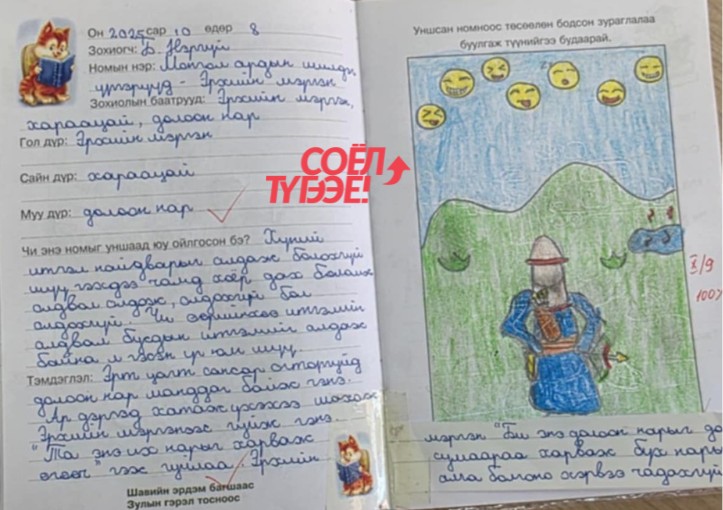 Он 2025 сар 10 өдөр 8
Зохиогч: Д. Нэргүй
Номын нэр: Монгол ардын шилдэг
үлгэрүүд - Эрхийн мэргэн
Зохиолын баатрууд: Эрхийн мэргэн,
хараацай, долоон нар
Гол дүр: Эрхийн мэргэн
Сайн дүр: хараацай
Муу дүр: долоон нар
Чи энэ номыг уншаад юу ойлгосон бэ? Хүний
итгэл найдварыг алдаж болохгүй
шүү гэхдээ чамд хоёр дах боломж
алдвал алдаж, алдахгүй бол
алдахгүй. Чи өөрийнхөө итгэлийг
алдвал бусдын итгэлийг алдаж
байна л гэсэн үг юм шүү.
Тэмдэглэл: Эрт цагт сансар огторгуйд
долоон нар манддаг байж гэнэ.
Ар дэргэд хатаж үхэхээ шахаж
Эрхийн мэргэнээс гуйж гэнэ
"Та энэ их нарыг харваж
өгөөч" гэж гуйлаа. Эрхийн
Шавийн эрдэм багшаас
Зулын гэрэл тосноос
Уншсан номноос төсөөлөн бодсон зураглалаа
буулгаж түүнийгээ будаарай.
X/9
100%
мэргэн "Би энэ долоон нарыг до
сумаараа харваж бүх нары
алга болгоно хэрвээ чадахгүй
СОЁЛ
ТҮГЭЭЕ!